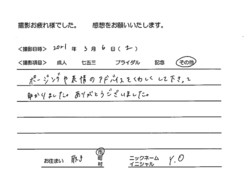 撮影お疲れ様でした。 感想をお願いいたします。
<撮影日時> 2021年 3月 6日 (土)
<撮影項目> 成人 七五三 ブライダル 記念 その他
ポージングや表情のアドバイスをくわしくして下さって
助かりました。ありがとうございました。
お住まい 市 郡 村 ニックネーム イニシャル Y.O